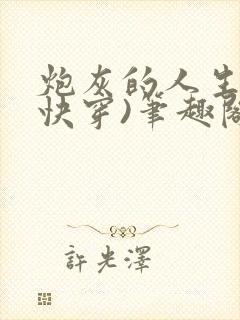 炮灰的人生
快穿)筆趣閣
許光澤